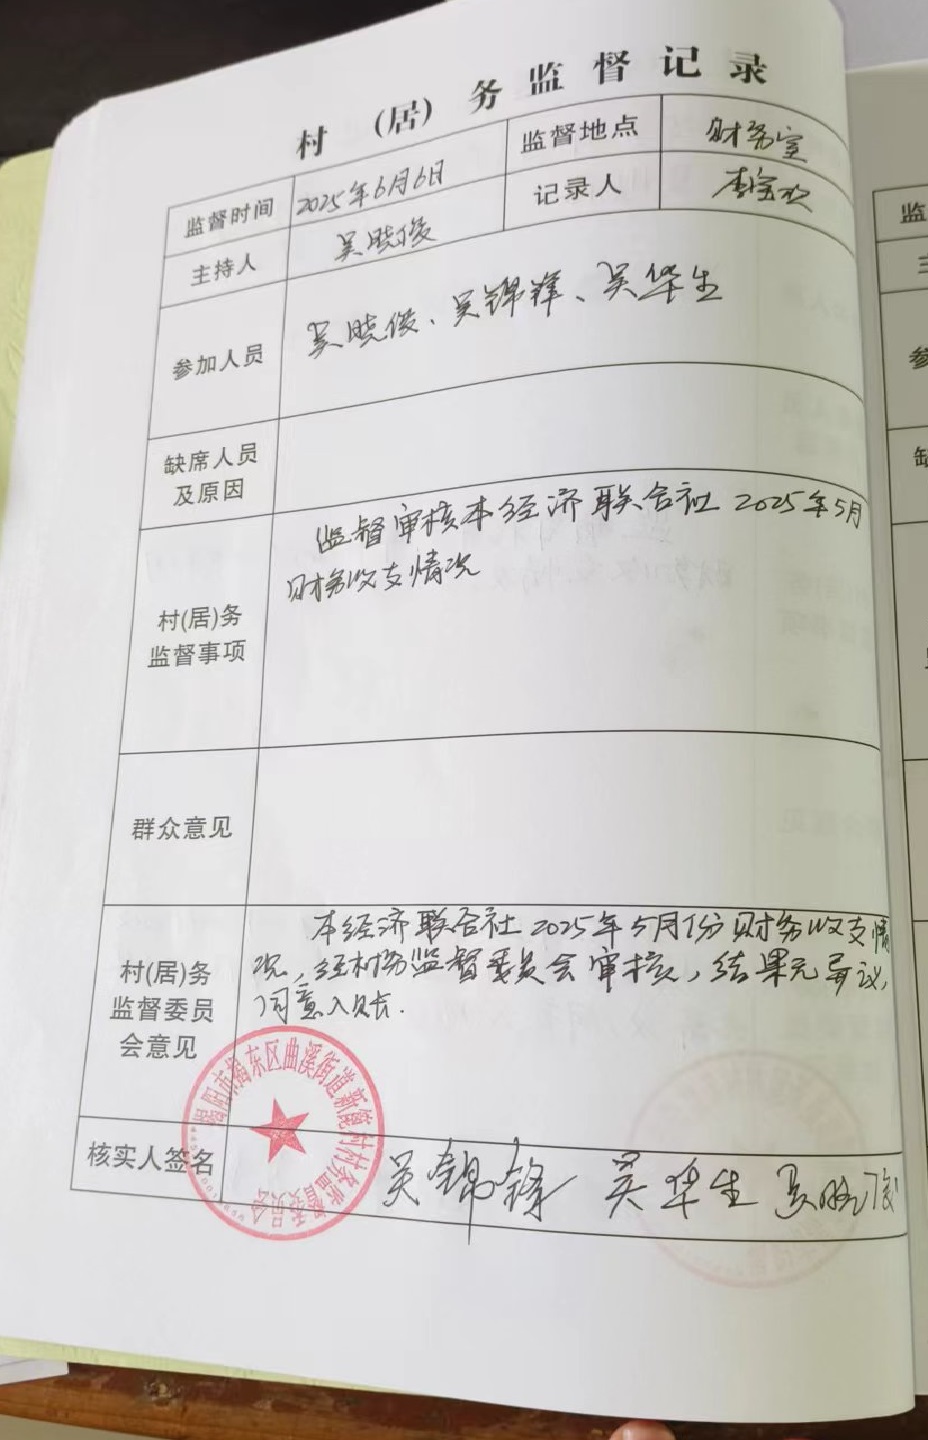 村（居）务监督记录
监督时间 2025年6月6日 监督地点 财务室
主持人 吴晓俊 记录人
参加人员 吴晓俊、吴锦锋、吴华生
缺席人员
及原因
村(居)务
监督事项
监督审核本经济联合社2025年5月
财务收支情况
群众意见
村(居)务
监督委员
会意见
本经济联合社2025年5月份财务收支情
况，经村务监督委员会审核，结果无异议，
同意入账.
揭阳市揭东区曲溪街道新篦村村务监督委员会
核实人签名 吴锦锋 吴华生 吴晓俊